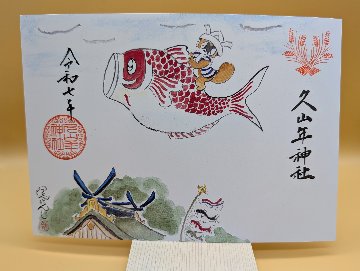 久山年神社
令和七年